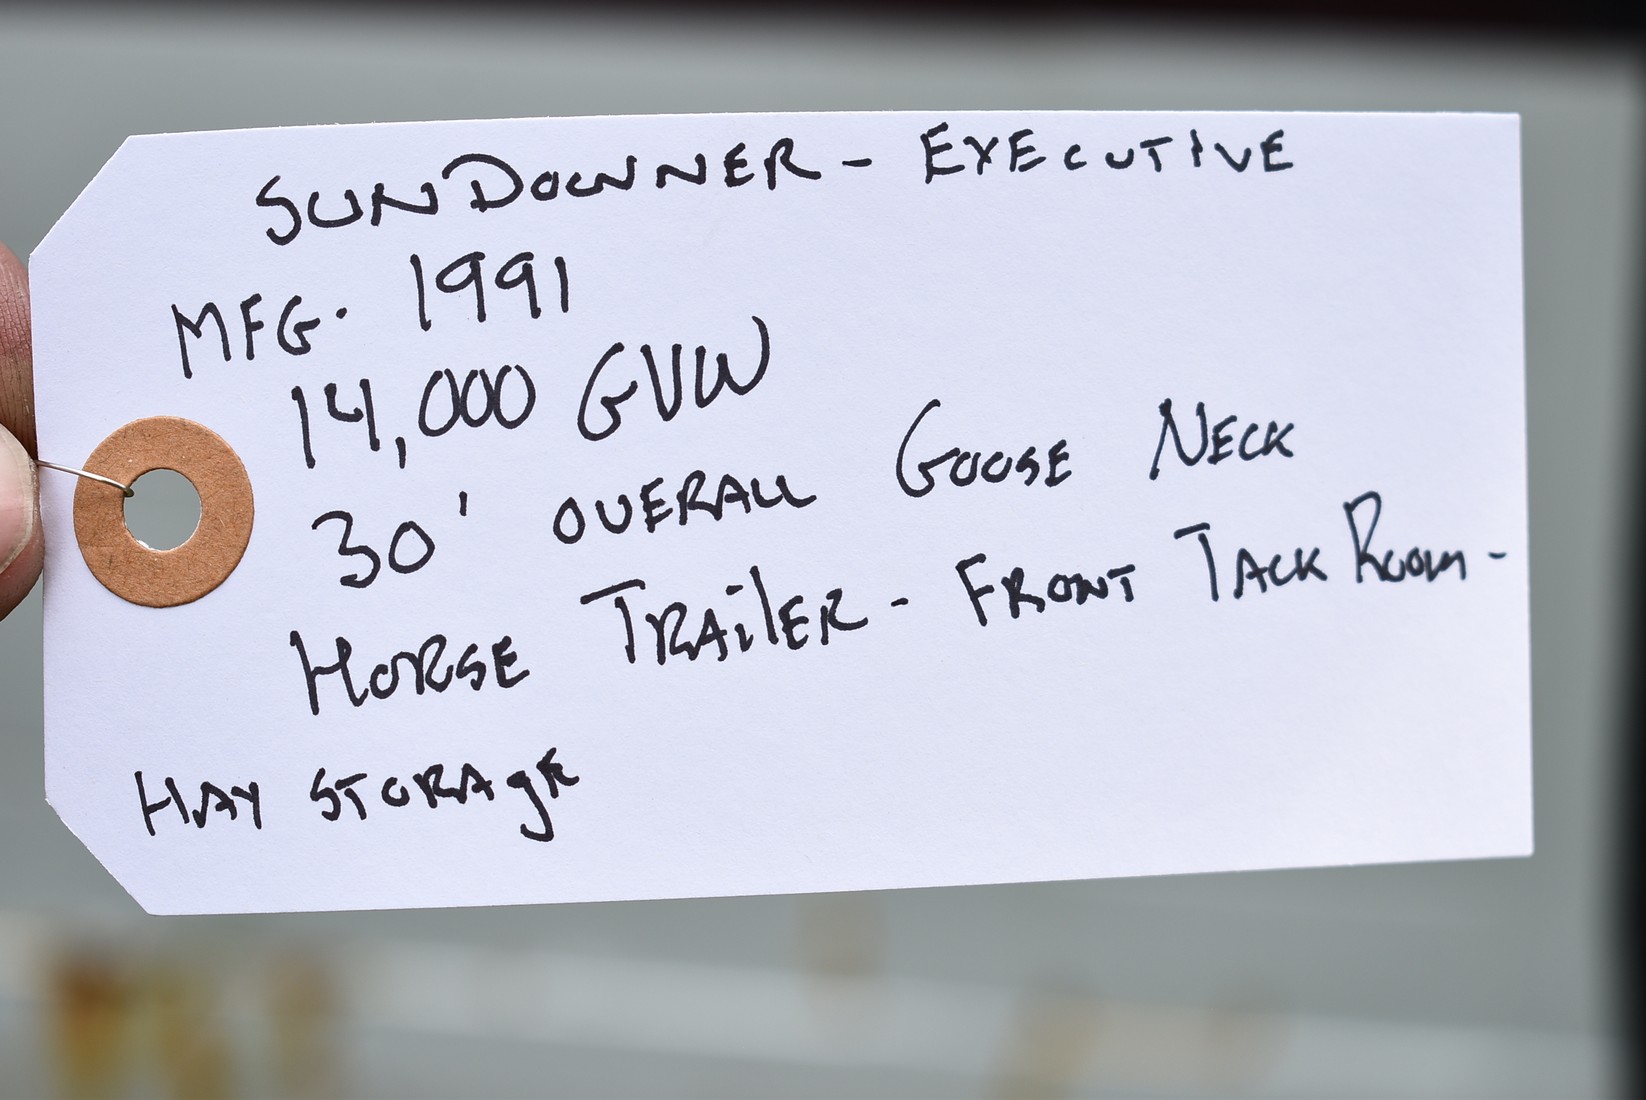 SUNDOWNER - EXECUTIVE
MFG. 1991
14,000 GVW
30' OVERALL GOOSE NECK
HORSE TRAILER - FRONT TACK ROOM -
HAY STORAGE